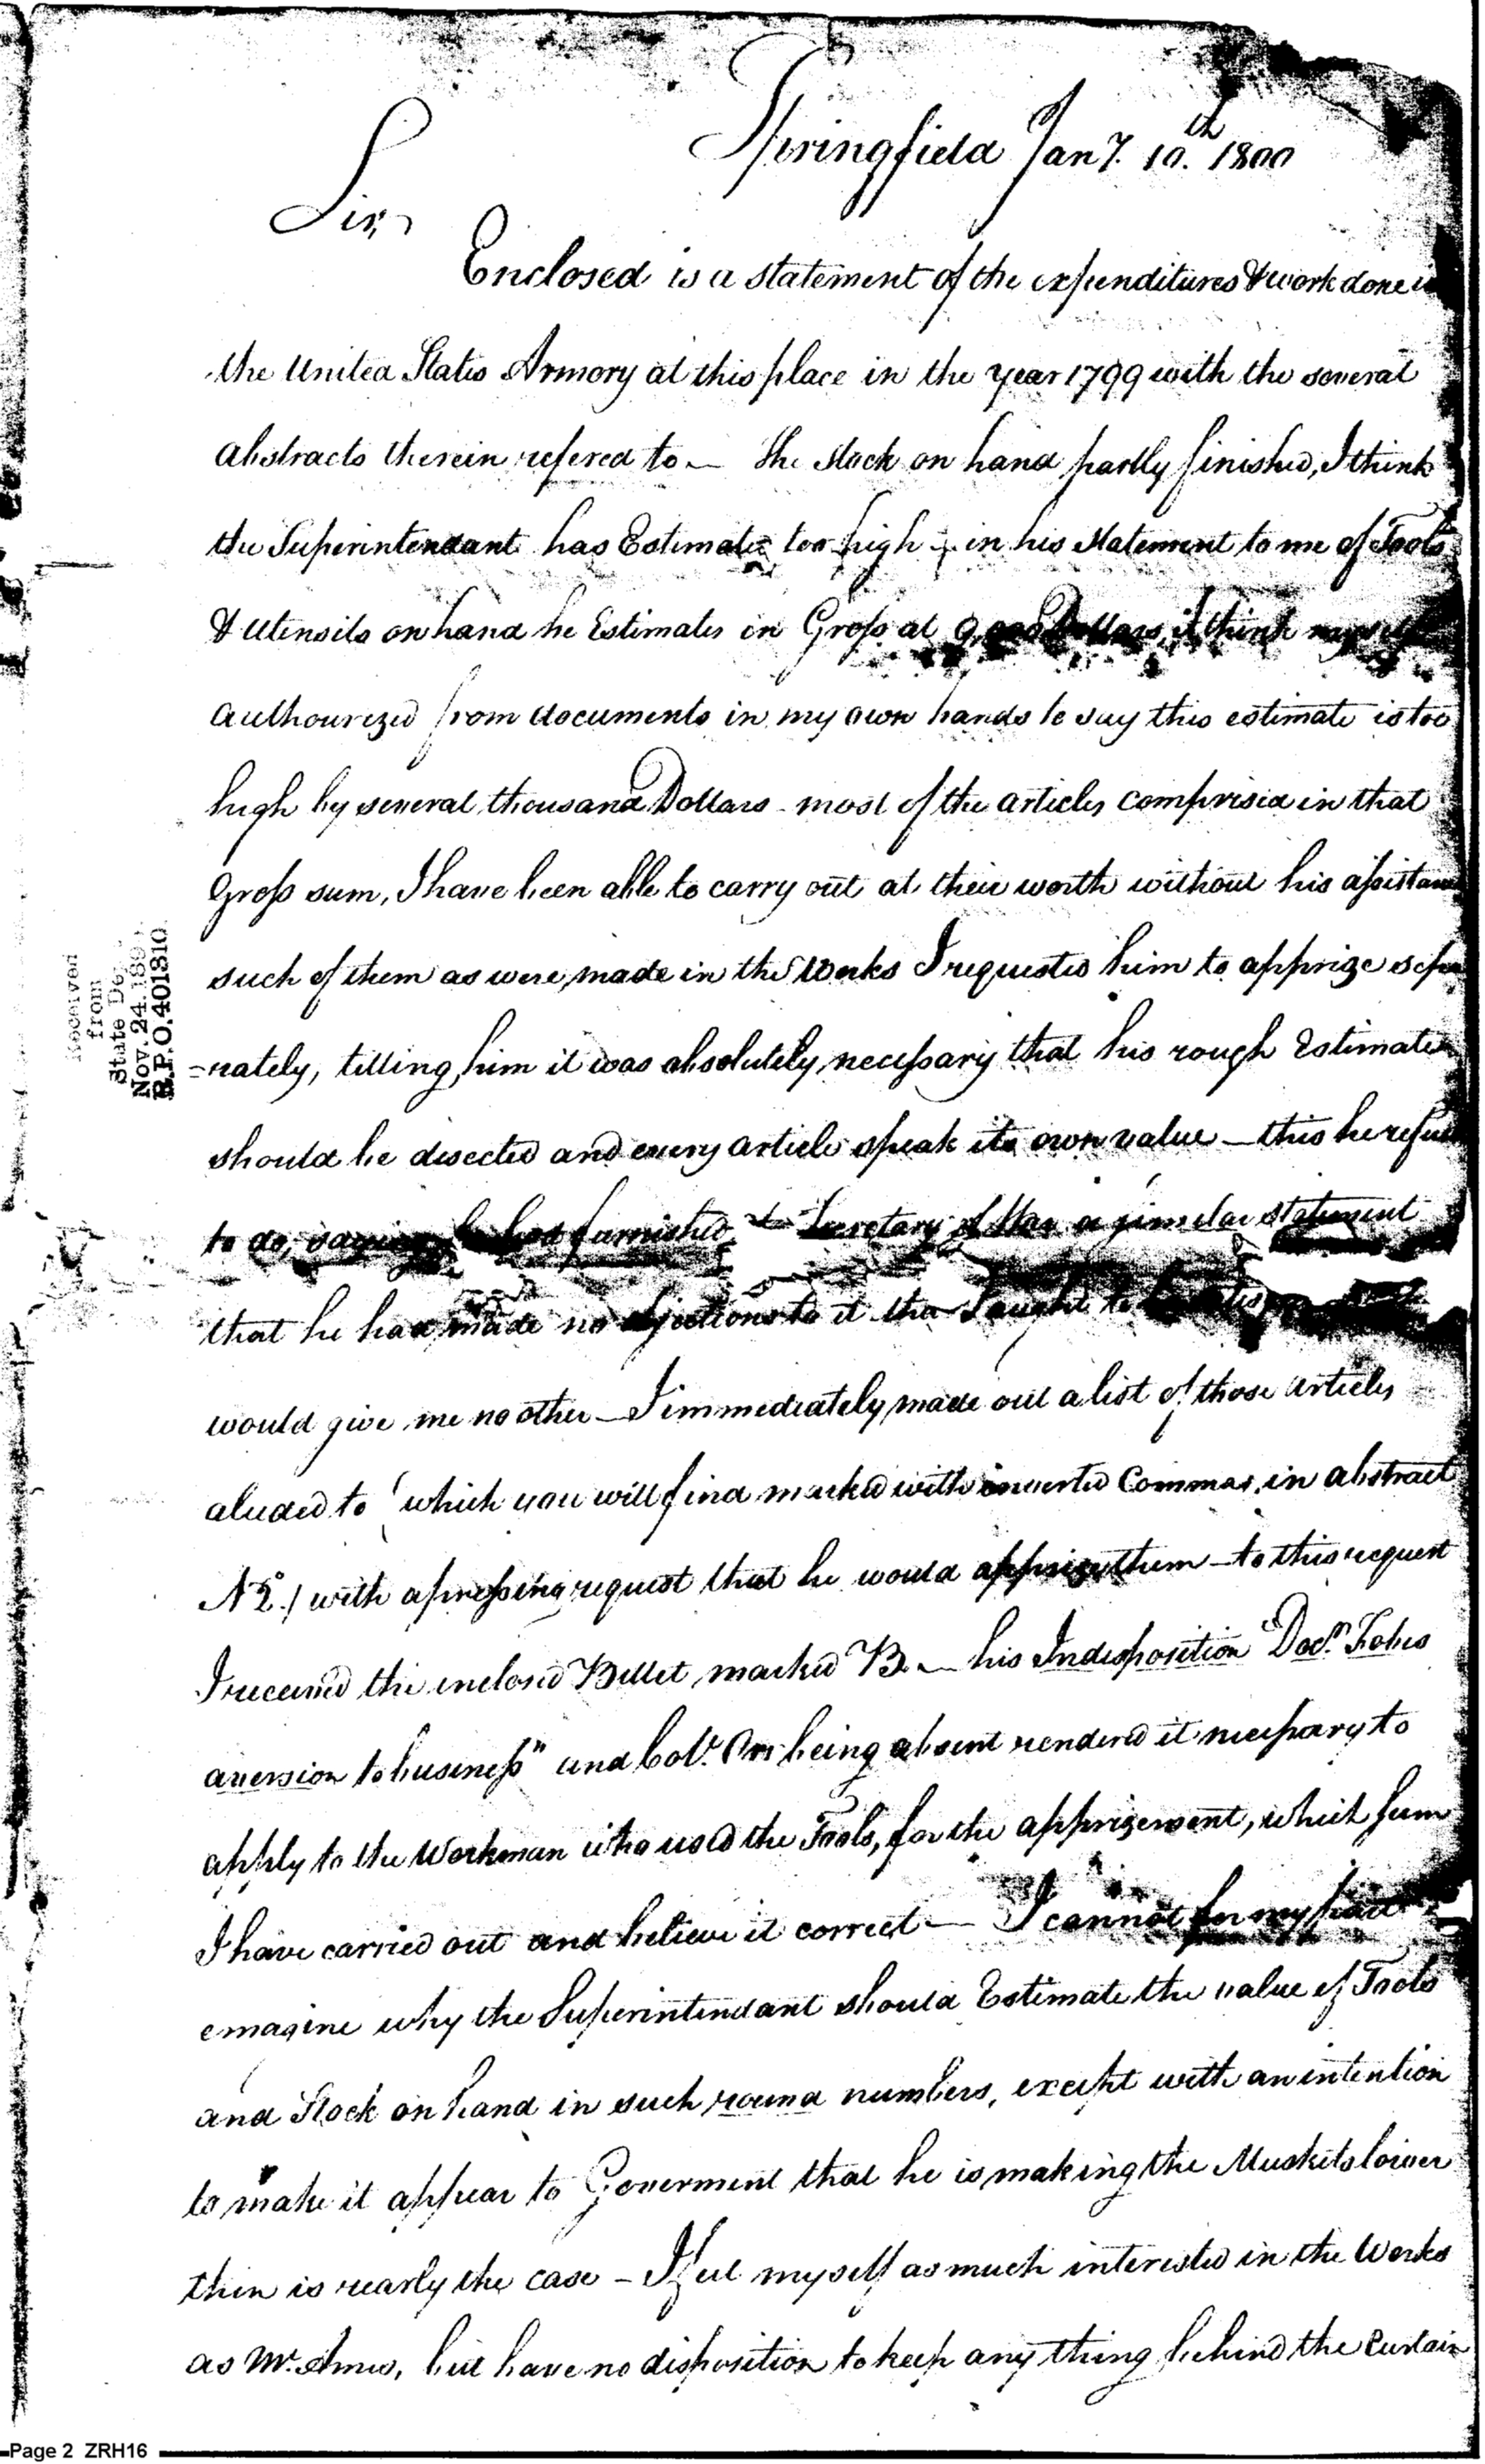 Springfield Jany. 10.th 1800
Sir,
Enclosed is a statement of the expenditures & work done in
the United States Armory at this place in the year 1799 with the several
abstracts therein refered to — the stock on hand partly finished, I think
the Superintendant has Estimated too high — in his Statement to me of Tools
& Utensils on hand he Estimates in Gross at 9,000 Dollars, I think myself
authourized from documents in my own hands to say this estimate is too
high by several thousand Dollars - most of the articles comprised in that
Gross sum, I have been able to carry out at their worth without his assistance
such of them as were made in the Works I requested him to apprize sepa
=rately, telling him it was absolutely necessary that his rough Estimate
should be disected and every article speak its own value — this he refused
to do, saying he had furnished the Secretary of War a similar statement
that he had made no objections to it that I ought to be
would give me no other — I immediately made out a list of those articles
aluded to (which you will find marked with inverted Commas, in abstract
No 2.) with a pressing request that he would apprize them — to this request
I received the enclosed Billet marked B. — his Indisposition "Doctr. Fobes
aversion to business" and Colo. Orr being absent rendered it necessary to
apply to the Workman who used the Tools, for the apprizement, which sum
I have carried out and believe it correct — I cannot for my part
emagine why the Superintendant should Estimate the value of Tools
and Stock on hand in such round numbers, except with an intention
to make it appear to Goverment that he is making the Muskets lower
then is really the case — I feel myself as much interested in the Works
as Mr. Ames, but have no disposition to keep any thing behind the Curtain
Received
from
State De
Nov. 24. 189
R.P.O. 401310
Page 2 ZRH16